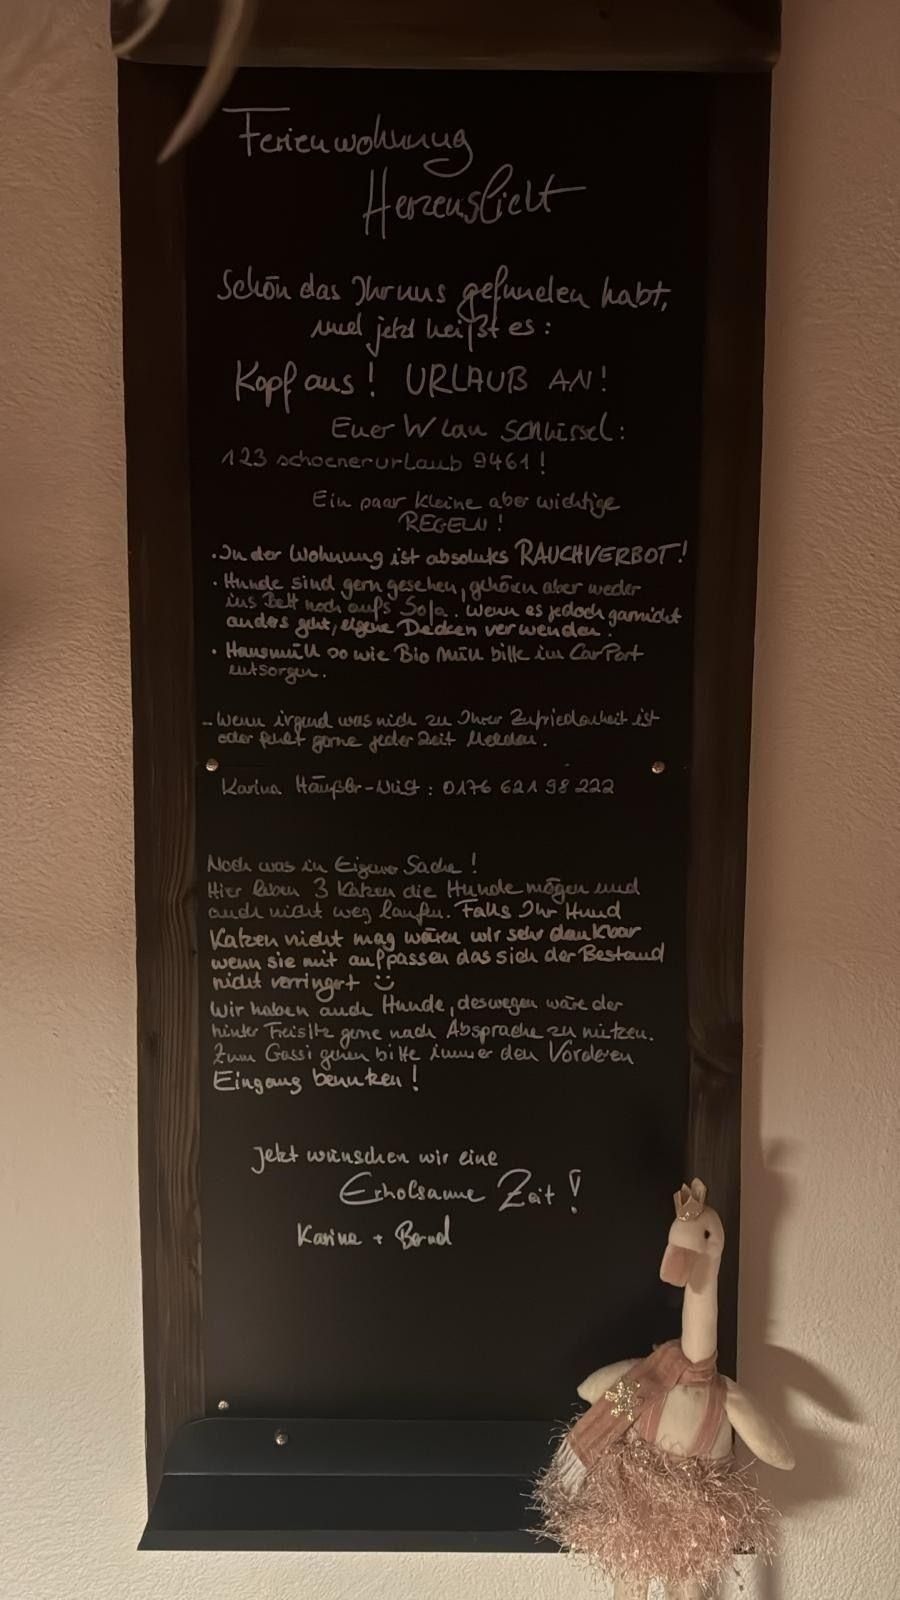 Ferienwohnung
Herzenslicht
Schön das Ihr uns gefunden habt,
und jetzt heißt es:
Kopf aus! URLAUB AN!
Euer W Lan SCHlüssel:
123 schoenerurlaub 9461!
Ein paar kleine aber wichtige
REGELN!
• In der Wohnung ist absolutes RAUCHVERBOT!
• Hunde sind gern gesehen, gehören aber weder
ins Bett noch aufs Sofa. Wenn es jedoch garnicht
anders geht, eigene Decken verwenden.
• Hausmüll so wie Bio Müll bitte im CarPort
entsorgen.
- Wenn irgend was nich zu Ihrer Zufriedenheit ist
oder fehlt gerne jeder Zeit Melden.
Karina : 0176 621 98 222
Noch was in Eigener Sache!
Hier leben 3 Katzen die Hunde mögen und
auch nicht weg laufen. Falls Ihr Hund
Katzen nicht mag wären wir sehr dankbar
wenn sie mit aufpassen das sich der Bestand
nicht verringert ☺
Wir haben auch Hunde, deswegen wäre der
hinter Freisitz gerne nach Absprache zu nutzen.
Zum Gassi gehen bitte immer den Vorderen
Eingang benutzen!
Jetzt wünschen wir eine
Erholsame Zeit!
Karina + Bernd